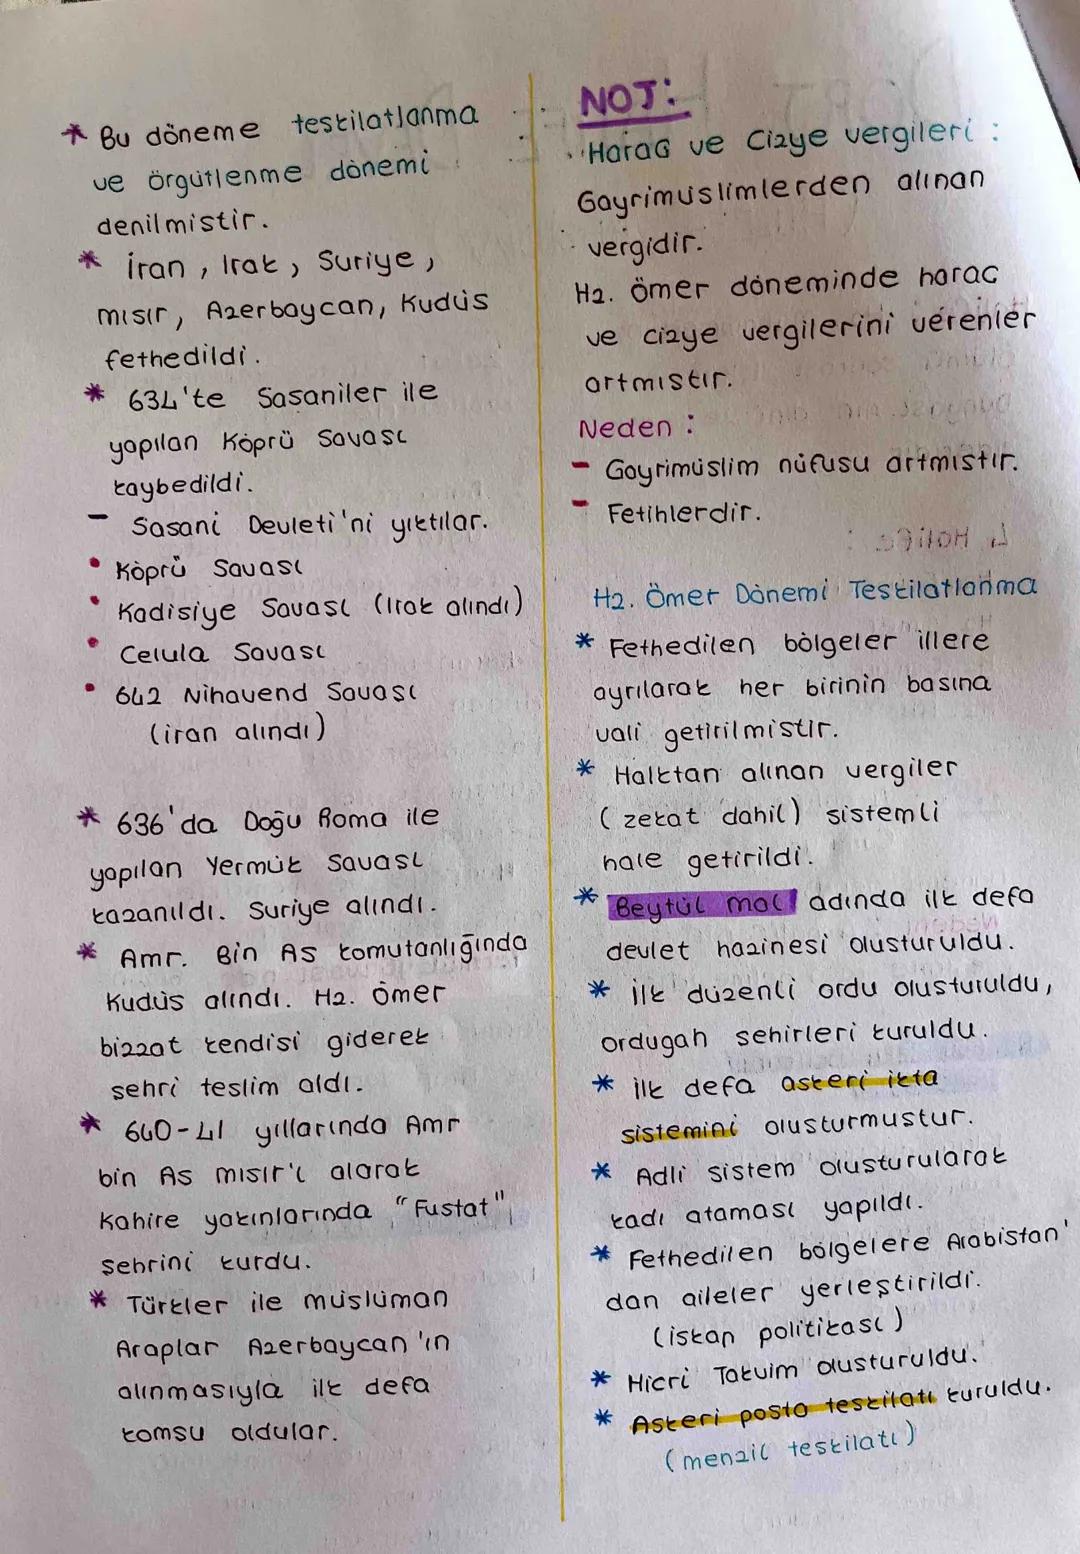 * Bu döneme teskilatlanma
ve örgütlenme dönemi
denilmistir.
* İran, Irak, Suriye,
mısır, Azerbaycan, Kudüs
fethedildi.
* 634'te Sasaniler ile
yapılan Köprü Savası
kaybedildi.
- Sasani Devleti'ni yıktılar.
• Köprü Savası
• Kadisiye Savası (Irak alındı)
• Celula Savası
• 642 Nihavend Savası
(iran alındı)
* 636'da Doğu Roma ile
yapılan Yermük Savası
kazanıldı. Suriye alındı.
* Amr. Bin As komutanlığında
Kudüs alındı. Hz. ömer
bizzat kendisi giderek
sehri teslim aldı.
* 640-41 yıllarında Amr
bin As mısır'ı alarak
Kahire yakınlarında "Fustat"
sehrini kurdu.
* Türkler ile müslüman
Araplar Azerbaycan'ın
alınmasıyla ilk defa
komsu oldular.
NOT:
Harac ve Cizye vergileri :
Gayrimüslimlerden alınan
vergidir.
Hz. Ömer döneminde harac
ve cizye vergilerini verenler
artmıstır.
Neden :
- Gayrimüslim nüfusu artmıstır.
- Fetihlerdir.
Hz. Ömer Dönemi Teskilatlanma
* Fethedilen bölgeler illere
ayrılarak her birinin basına
vali getirilmistir.
* Halktan alınan vergiler
(zekat dahil) sistemli
hale getirildi.
* Beytül mal adında ilk defa
devlet hazinesi olusturuldu.
* İlk düzenli ordu olusturuldu,
ordugah sehirleri kuruldu.
* ilk defa askeri ikta
sistemini olusturmustur.
* Adli sistem olusturularak
kadı ataması yapıldı.
* Fethedilen bölgelere Arabistan'
dan aileler yerleştirildi.
(iskan politikası)
* Hicri Takvim olusturuldu.
* Askeri posta teskilatı kuruldu.
(menzil teskilatı)